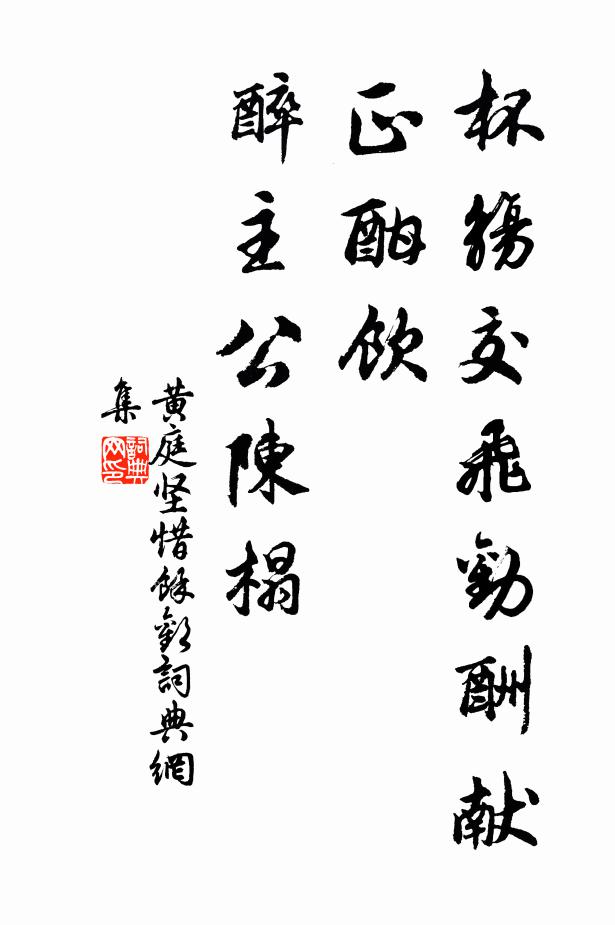 杯觴交飛勸酬献
正酣飲
醉主公陳榻
黄庭坚惜餘歡詞典網
集
詞典
网印